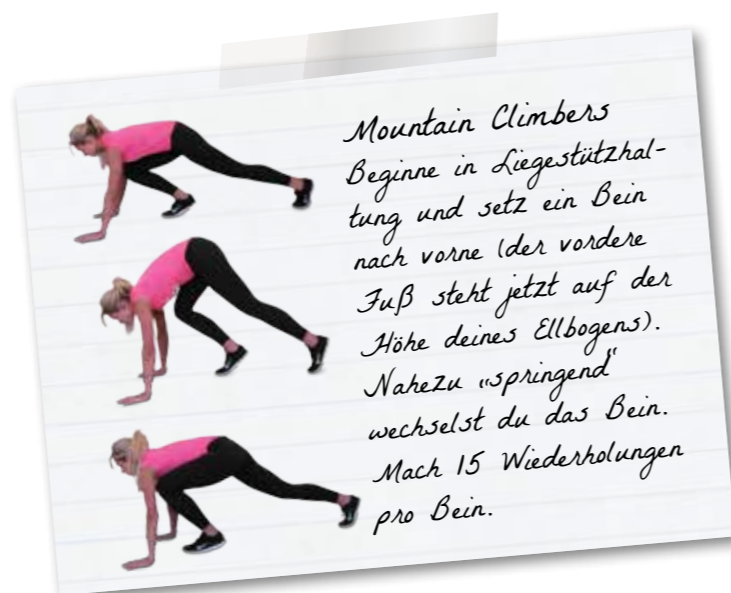 Mountain Climbers
Beginne in Liegestützhal-
tung und setz ein Bein
nach vorne (der vordere
Fuß steht jetzt auf der
Höhe deines Ellbogens).
Nahezu „springend“
wechselst du das Bein.
Mach 15 Wiederholungen
pro Bein.